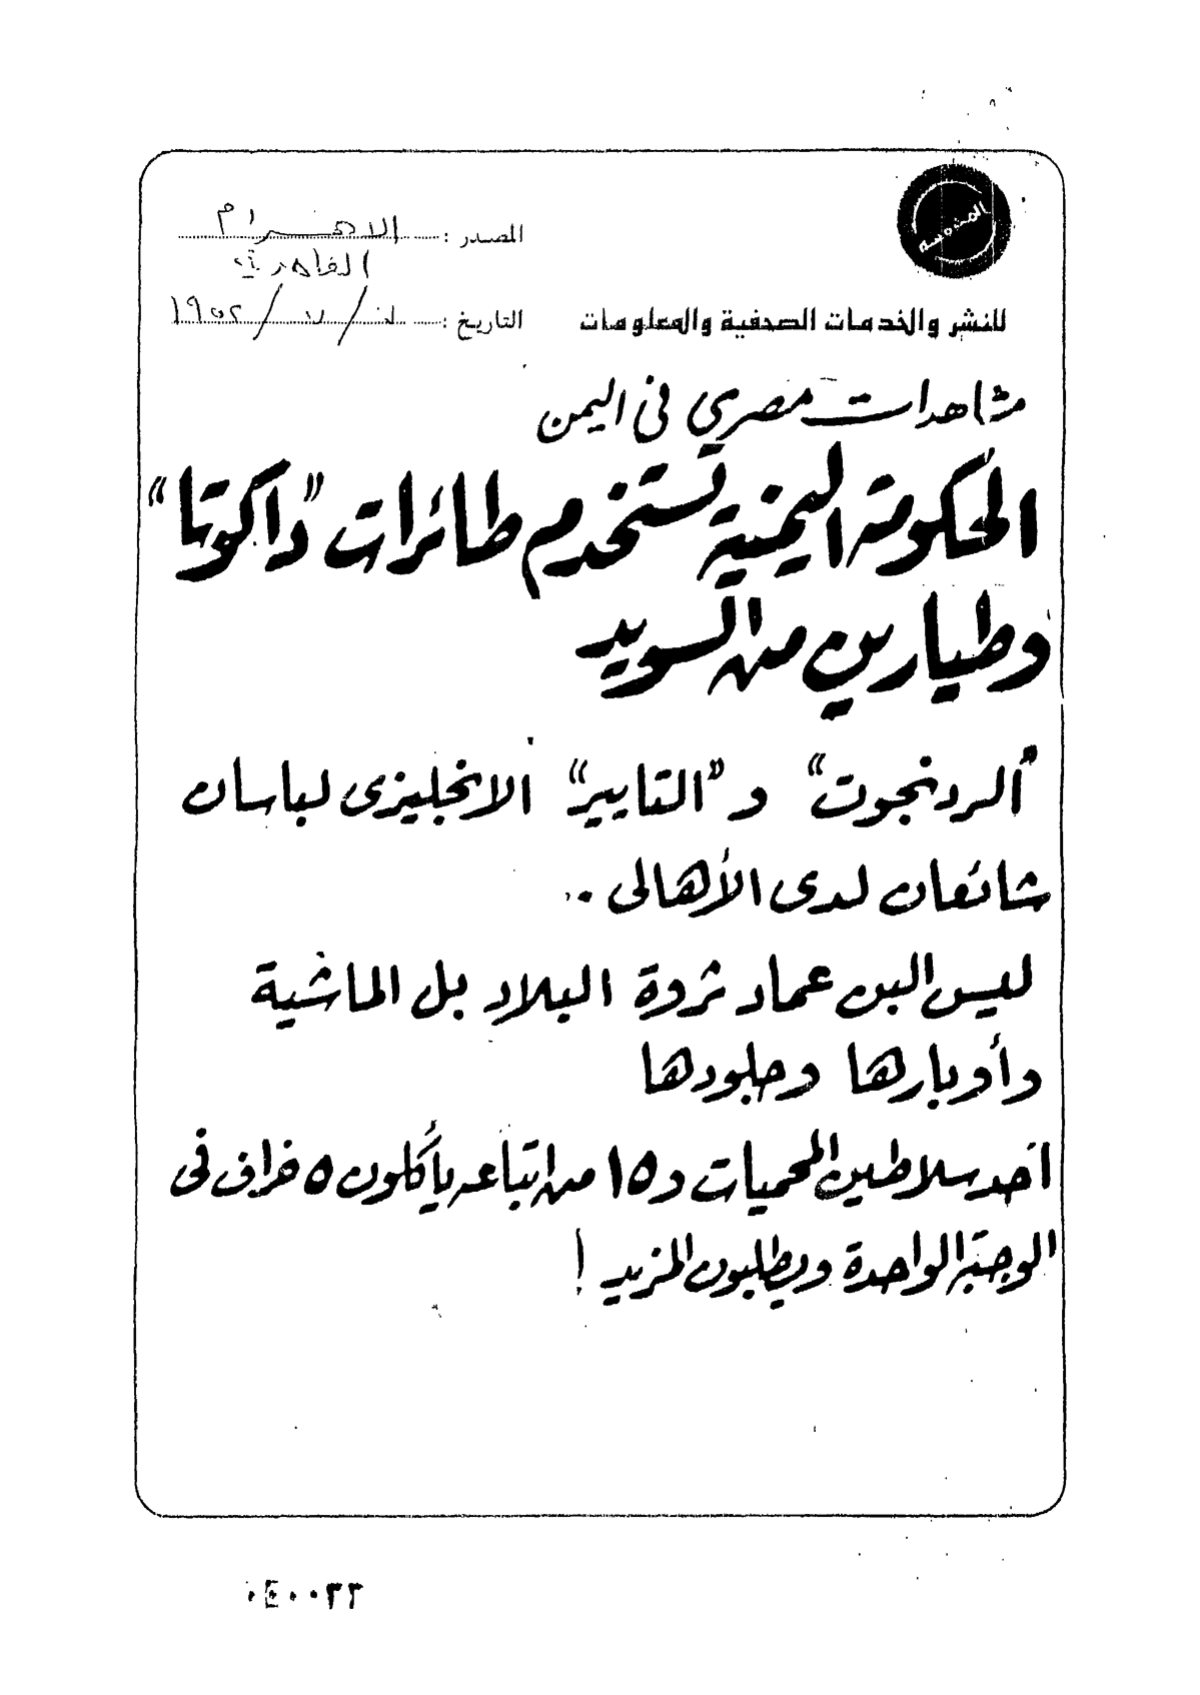 المصدر : الاهرام
القاهرية
للنشر والخدمات الصحفية والمعلومات
التاريخ : / ٧ / ١٩٥٢
مشاهدات مصرى فى اليمن
الحكومة اليمنية تستخدم طائرات "داكوتا"
وطيارين من السويد
"الردنجوت" و "التايير" الانجليزى لباسان
شائعان لدى الأهالى ..
ليس البن عماد ثروة البلاد بل الماشية
وأوبارها وجلودها
أحد سلاطين المحميات و ١٥ من اتباعه يأكلون ٥ خراف فى
الوجبة الواحدة ويطلبون المزيد !